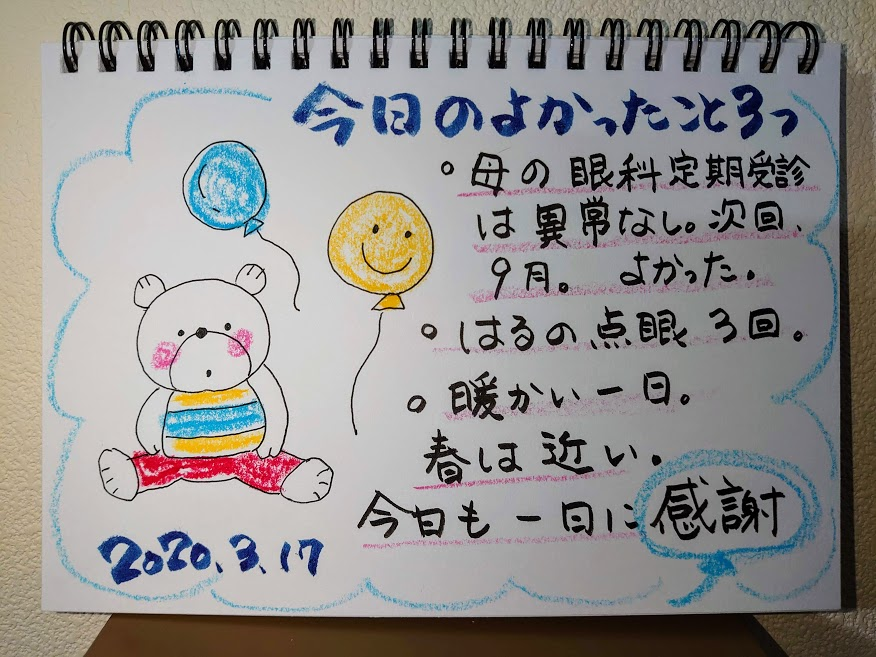 今日のよかったこと3つ
○母の眼科定期受診
は異常なし。次回、
9月。よかった。
○はるの点眼3回。
○暖かい一日。
春は近い。
今日も一日に感謝
2020.3.17